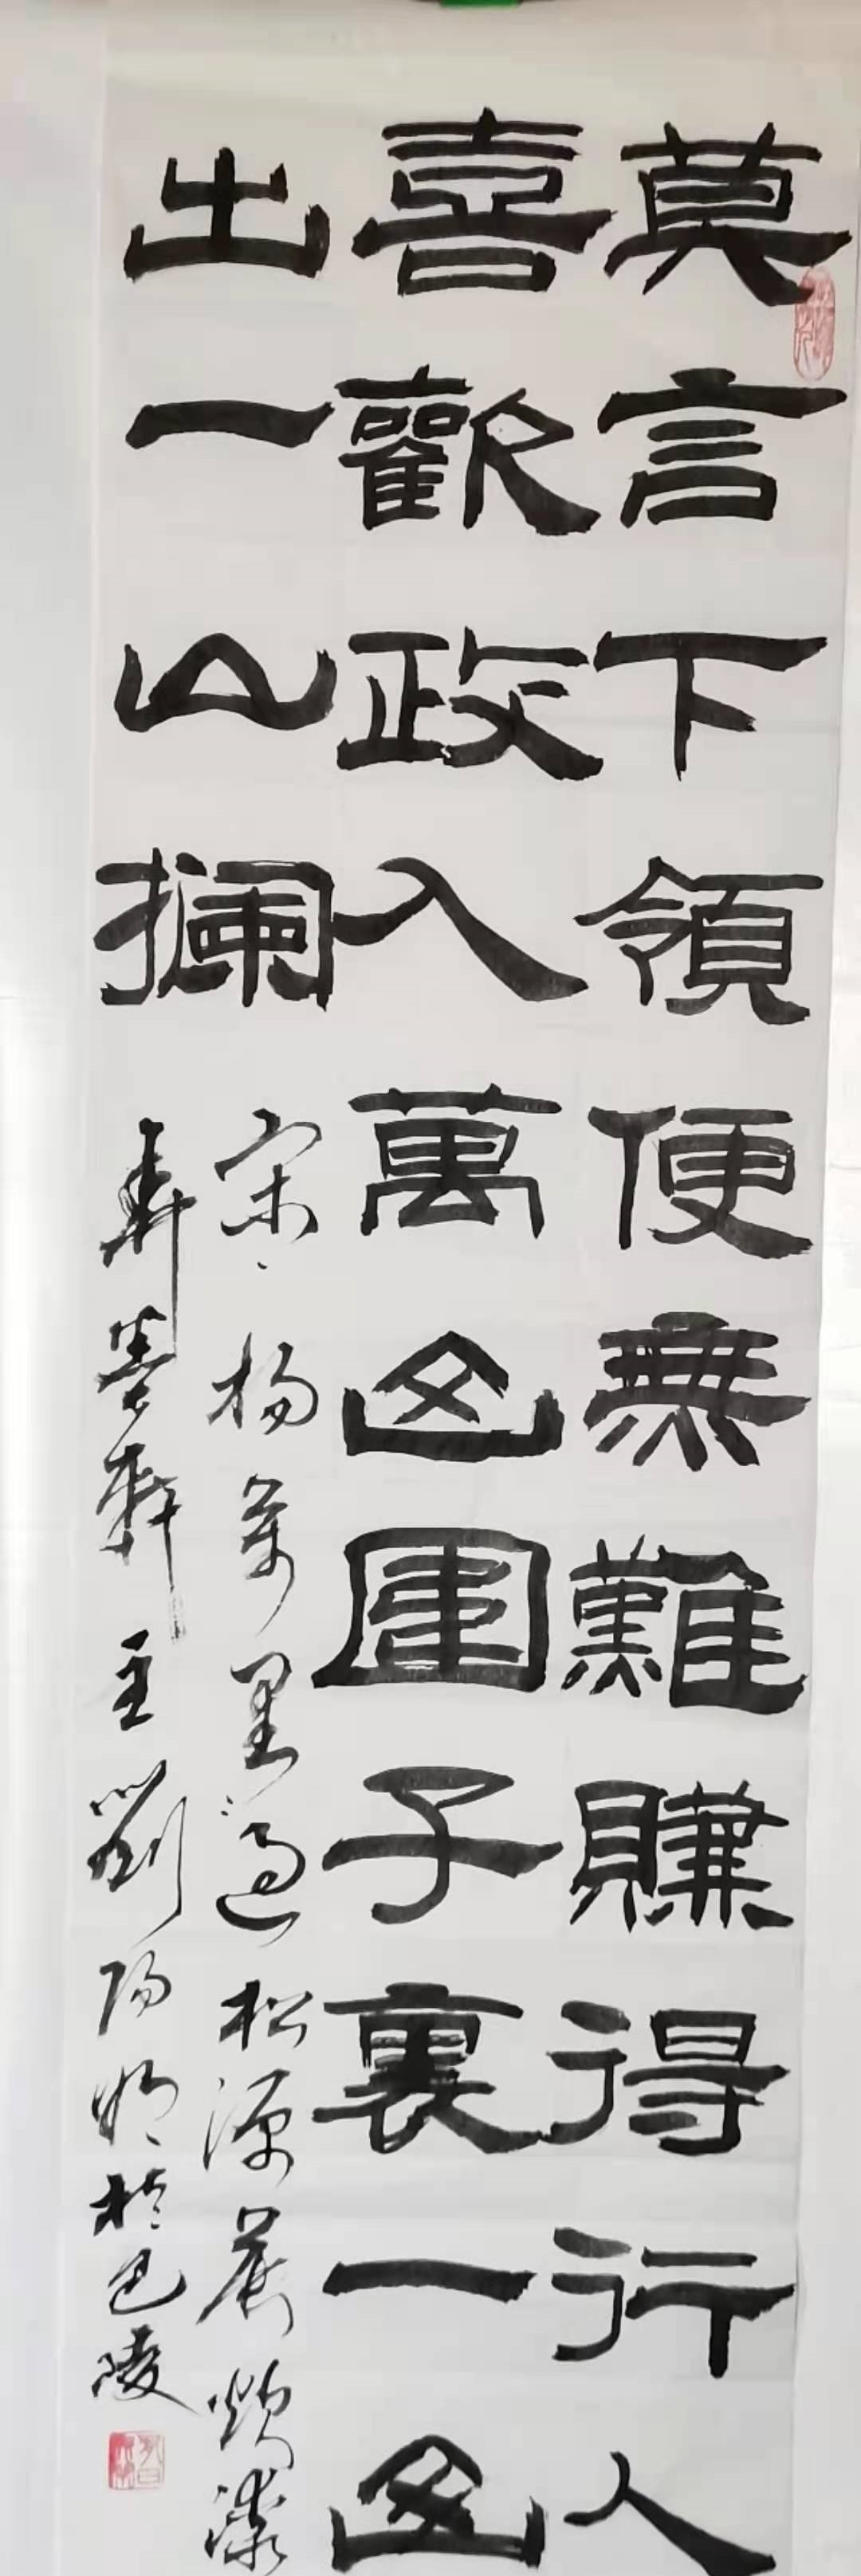 莫言下領便無難賺得行人
喜歡政入萬山圍子裏一山
出一山攔
宋、楊萬里過松源晨炊漆
墨軒主劉陽明於巴陵